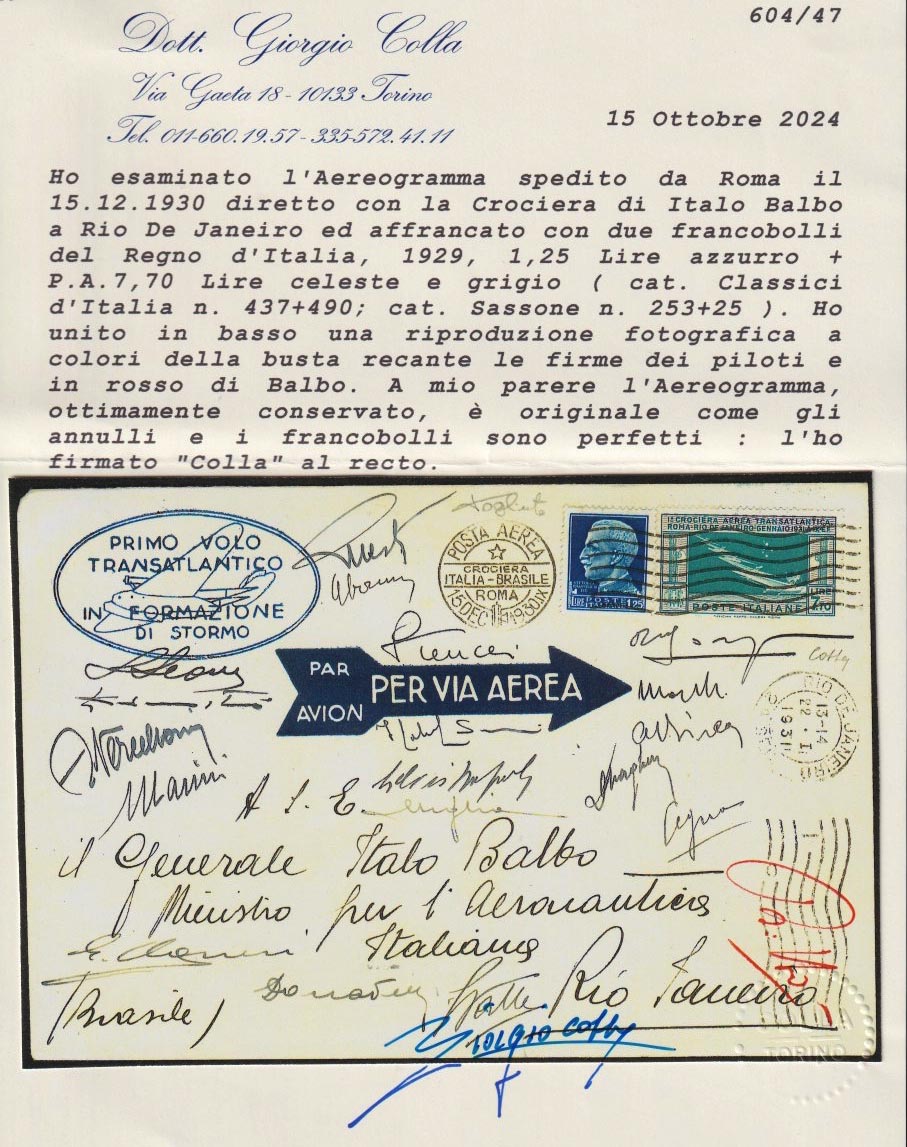 604/47
Dott. Giorgio Colla
Via Gaeta 18 - 10133 Torino
Tel. 011-660.19.57 - 335-572.41.11
15 Ottobre 2024
Ho esaminato l'Aereogramma spedito da Roma il
15.12.1930 diretto con la Crociera di Italo Balbo
a Rio De Janeiro ed affrancato con due francobolli
del Regno d'Italia, 1929, 1,25 Lire azzurro +
P.A.7,70 Lire celeste e grigio ( cat. Classici
d'Italia n. 437+490; cat. Sassone n. 253+25 ). Ho
unito in basso una riproduzione fotografica a
colori della busta recante le firme dei piloti e
in rosso di Balbo. A mio parere l'Aereogramma,
ottimamente conservato, è originale come gli
annulli e i francobolli sono perfetti : l'ho
firmato "Colla" al recto.
PRIMO VOLO
TRANSATLANTICO
IN FORMAZIONE
DI STORMO
POSTA AEREA
CROCIERA
ITALIA-BRASILE
ROMA
15 DEC 1930 IX
POSTE ITALIANE
LIRE 1,25
II CROCIERA AEREA TRANSATLANTICA
ROMA-RIO DE JANEIRO GENNAIO 1931
LIRE
7.70
POSTE ITALIANE
PAR
AVION
PER VIA AEREA
RIO DE JANEIRO
13-14
22 . I
1931
Marini
A S. E.
il Generale Italo Balbo
Ministro per l'Aeronautica
Italiana
Rio Janeiro
(Brasile)
Giorgio Colla
TORINO